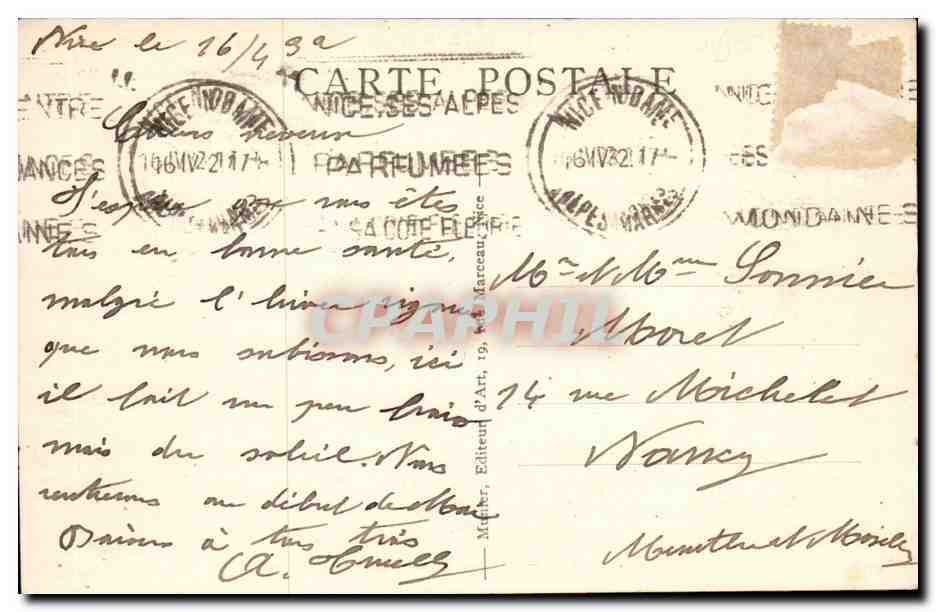 Nice le 16/4 32
CARTE POSTALE
NICE, SES ALPES
PARFUMÉES
SA COTE FLEURIE
NICE NOTRE DAME
16 IV 32 17
ALPES MARMES
MONDAINES
Chers neveux
J'espère que vous êtes
tous en bonne santé,
malgré l'hiver rigoureux
que nous subissons, ici
il fait un peu frais
mais du soleil. Nous
rentrerons au début de Mai
Baisers à tous trois
A.
Mr et Mme Sonnier
Moret
14 rue Michelet
Nancy
Meurthe et Moselle
Munier, Editeur d'Art, 19, rue Marceau, Nice
CPAPHIL